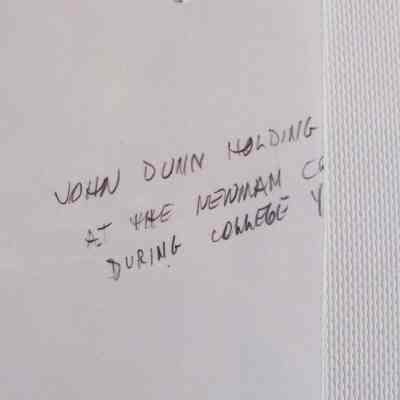 JOHN DUNN HOLDING
AT THE NEWMAN
DURING COLLEGE